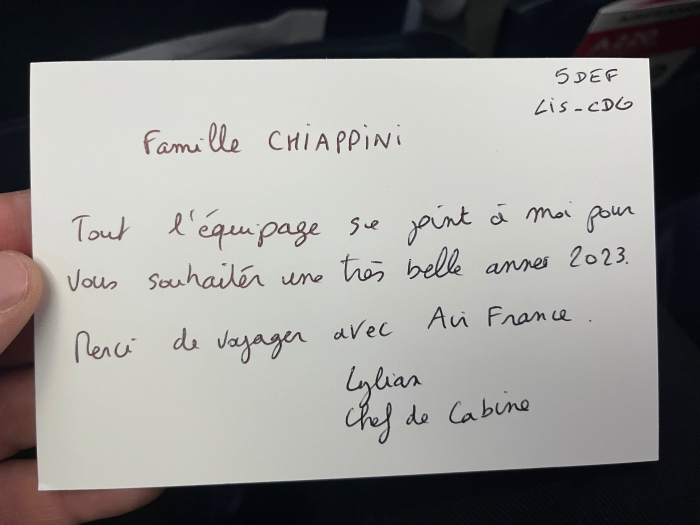 5DEF
Lis-CDG
Famille CHIAPPINI
Tout l'équipage se joint à moi pour
vous souhaiter une très belle année 2023.
Merci de voyager avec Air France.
Lylian
Chef de Cabine
A220